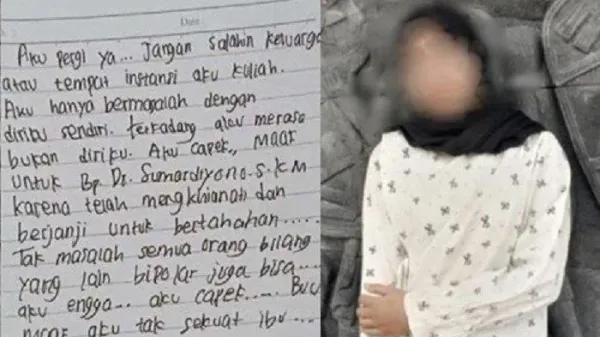 Date
Aku pergi ya... Jangan salahin keluarga
atau tempat instansi aku kuliah.
Aku hanya bermasalah dengan
diriku sendiri. terkadang aku merasa
bukan diriku. Aku capek,, maaf
untuk Bp. Dr. Sumardiyono.S.KM
karena telah mengkhianati dan
berjanji untuk bertahan.....
Tak masalah semua orang bilang
yang lain bipolar juga bisa....
aku engga... aku capek.... Bu
maaf aku tak sekuat ibu...